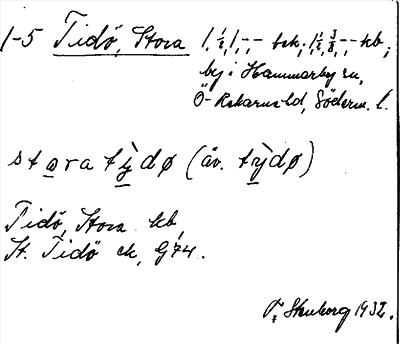 1-5 Tidö, Stora 1, ½, 1, -- bek; 1½, ⅜, -, - kb,
by i Hammarby sn,
Ö-Rekarne hd, Söderm. l.
stora tỳdø (äv. tỳdø)
Tidö, Stora kb,
St. Tidö ek, G74.
F. Stenborg 1932.